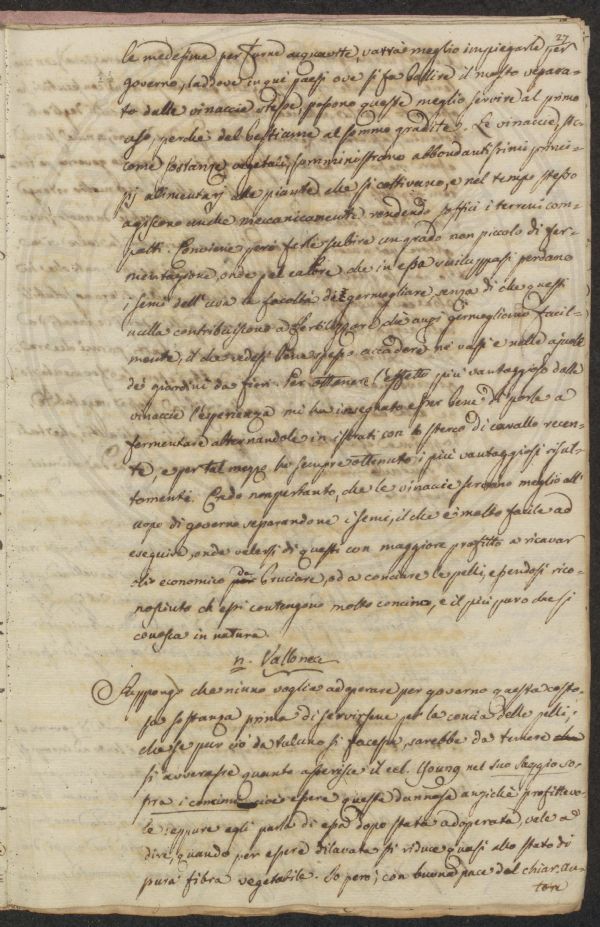 27
le medesime per farne acquavite, varrà meglio impiegarle per
governo, laddove in quei paesi ove si fa bollire il mosto separa-
to dalle vinaccie stesse, possono queste meglio servire al primo
uso, perchè del bestiame al sommo gradite. Le vinaccie, sic-
come sostanze vegetali, somministrano abbondantissimi princi-
pj alimentarj alle piante che si coltivano, e nel tempo stesso
agiscono anche meccanicamente rendendo soffici i terreni com-
patti. Conviene però farle subire un grado non piccolo di fer-
mentazione, onde pel calore che in esse svilupasi perdano
i semi dell'uva la facoltà di germogliare, senza di che questi
nulla contribuiscono a fertilizzare, che anzi germogliano facil-
mente, il che vedesi bene spesso accadere ne' vasi e nelle ajuole
dei giardini da fiori. Per ottenere l'effetto più vantaggioso dalle
vinaccie l'esperienza mi ha insegnato esser bene di porle a
fermentare alternandole in istrati con lo sterco di cavallo recen-
te, e per tal mezzo ho sempre ottenuto i più vantaggiosi risul-
tamenti. Credo nonpertanto, che le vinaccie servano meglio all'
uopo di governo separandone i semi, il che è molto facile ad
eseguirsi, onde valersi di questi con maggiore profitto a ricavar
olio economico da bruciare, od a conciare le pelli, essendosi rico-
nosciuto ch'essi contengono molto concino, e il più puro che si
conosca in natura.
n. Vallonea
Suppongo che niuno voglia adoperare per governo questa costo-
sa sostanza prima di servirsene per la concia delle pelli;
che se pur ciò da taluno si facesse, sarebbe da temere
si avverasse quanto asserisce il cel. Young nel suo saggio so-
pra i concimi, cioè essere queste dannose anzichè profittevo-
le: eppure egli parla di essa dopo stata adoperata, vale a
dire, quando per essere dilavata si riduce quasi allo stato di
pura fibra vegetabile. Io però, con buona pace del chiar. au-
tore